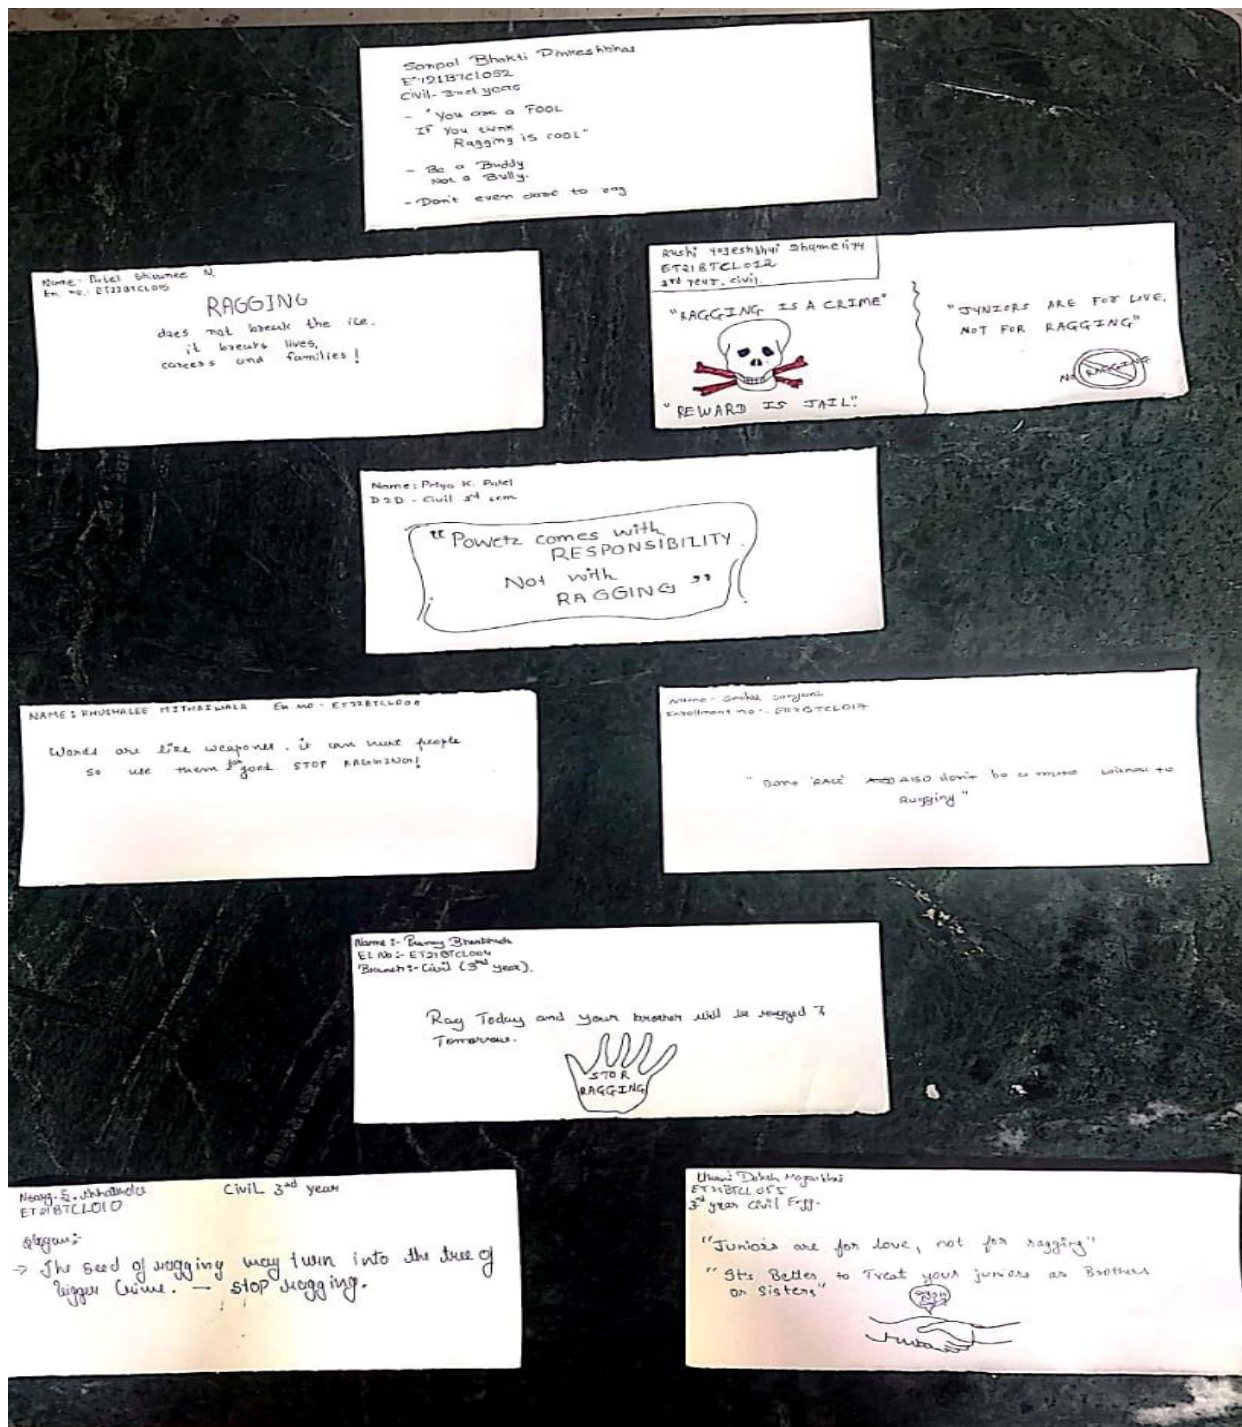 Sonpal Bhakti Dineshbhai
ET21BTCL052
Civil - 3rd year
- "You are a FOOL
If You think
Ragging is COOL"
- Be a Buddy
Not a Bully.
- Don't even dare to rag
Name: Patel N.
En. no.: ET22BTCL015
RAGGING
does not break the ice.
it breaks lives,
careers and families!
Rushi Yogeshbhai Dhameliya
ET21BTCL012
3rd year. civil.
"RAGGING IS A CRIME"
"REWARD IS JAIL".
"JUNIORS ARE FOR LOVE.
NOT FOR RAGGING"
NO RAGGING
Name: Priya K. Patel
D2D - Civil 3rd sem
"Power comes with
RESPONSIBILITY.
Not with
RAGGING"
NAME: KHUSHALEE MITHAIWALA En no - ET22BTCL009
Words are like weapones. it can hurt people
so use them for good. STOP RAGGING!
Name -
Enrollment no:-
"Don't 'RAGE' Also don't be a mute witness to
Ragging"
Name :-
El No :- ET21BTCL004
Branch :- Civil (3rd year).
Rag Today and your brother will be ragged
Tomorrow.
STOP
RAGGING
Civil 3rd year
ET21BTCL010
Slogan:-
→ The seed of ragging may turn into the tree of
bigger Crime. — STOP ragging.
ET21BTCL055
3rd year Civil Engg.
"Juniors are for love, not for ragging"
"Its Better to Treat your juniors as Brothers
or Sisters"